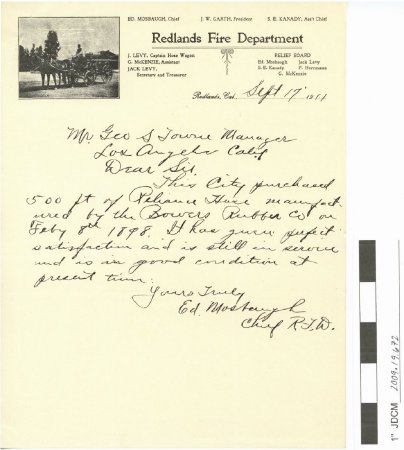 ED. MOSBAUGH, Chief J. W. GARTH, President S. E. KANADY, Ass't Chief
Redlands Fire Department
J. LEVY, Captain Hose Wagon
G. McKENZIE, Assistant
JACK LEVY,
Secretary and Treasurer
RELIEF BOARD
Ed. Mosbaugh Jack Levy
S. E. Kanady F. Herrmann
G. McKenzie
Redlands, Cal. Sept 17 1911
Mr Geo S Towne Manager
Los Angeles Calif.
Dear Sir.
This City purchased
500 ft of Reliance Hose manufact
ured by the Bowers Rubber Co on
Feby 8th 1898. It has given perfect
satisfaction and is still in service
and is in good condition at
present time.
Yours Truly
Ed. Mosbaugh
Chief R.F.D.
1" JDCM 2009.19.672